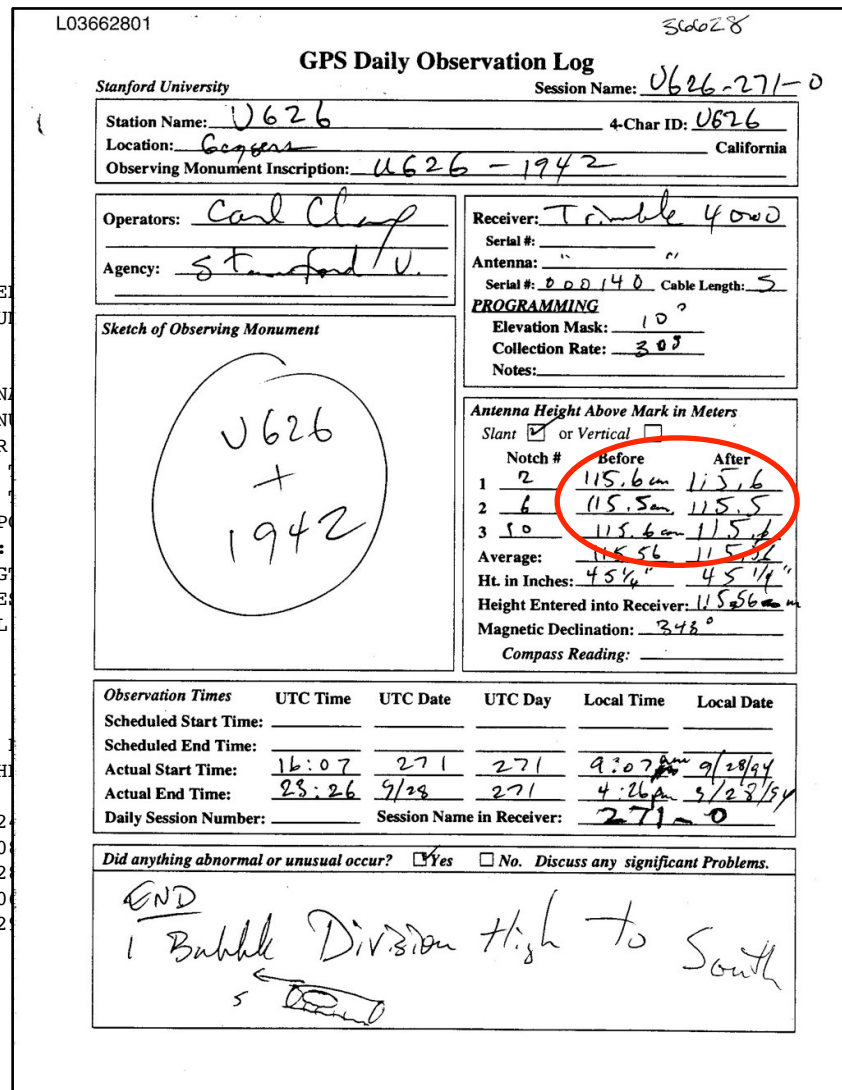 L03662801 36628
GPS Daily Observation Log
Stanford University Session Name: U626-271-0
Station Name: U626 4-Char ID: U626
Location: Geysers California
Observing Monument Inscription: U626 - 1942
Operators: Carl
Agency: Stanford U.
Receiver: Trimble 4000
Serial #:
Antenna: " "
Serial #: 000140 Cable Length: 5
PROGRAMMING
Elevation Mask: 10°
Collection Rate: 30s
Notes:
Sketch of Observing Monument
U626
+
1942
Antenna Height Above Mark in Meters
Slant ☑ or Vertical ☐
Notch # Before After
1 2 115.6 cm 115.6
2 6 115.5 cm 115.5
3 10 115.6 cm 115.6
Average: 115.56 115.56
Ht. in Inches: 45 1/4" 45 1/4"
Height Entered into Receiver: 115.56 m
Magnetic Declination: 348°
Compass Reading:
Observation Times UTC Time UTC Date UTC Day Local Time Local Date
Scheduled Start Time:
Scheduled End Time:
Actual Start Time: 16:07 271 271 9:07 am 9/28/94
Actual End Time: 23:26 9/28 271 4:26 pm 9/28/94
Daily Session Number: Session Name in Receiver: 271-0
Did anything abnormal or unusual occur? ☑Yes ☐ No. Discuss any significant Problems.
END
1 Bubble Division High to South
S